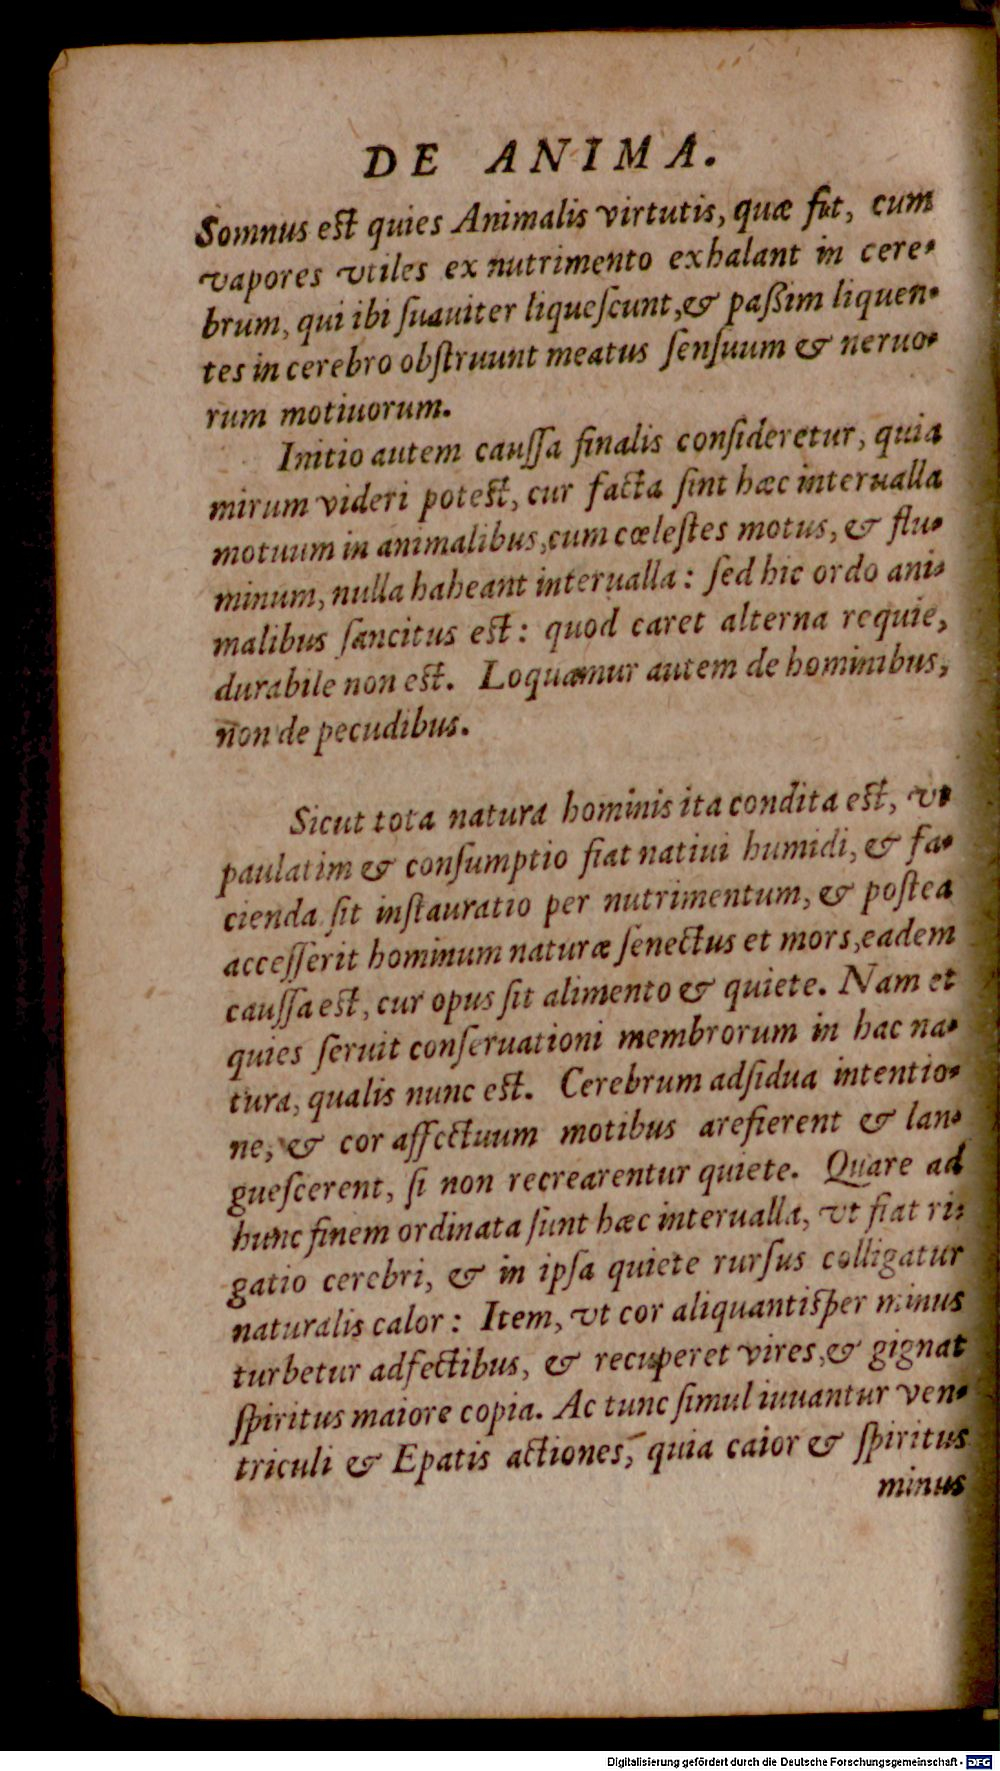 DE ANIMA.
Somnus est quies Animalis virtutis, quæ fit, cum
vapores vtiles ex nutrimento exhalant in cere-
brum, qui ibi ſuauiter liqueſcunt, & paßim liquen-
tes in cerebro obſtruunt meatus ſenſuum & neruo-
rum motiuorum.
Initio autem cauſſa finalis conſideretur, quia
mirum videri potest, cur facta ſint hæc interualla
motuum in animalibus, cum cœleſtes motus, & flu-
minum, nulla haheant interualla: ſed hic ordo ani-
malibus ſancitus est: quod caret alterna requie,
durabile non est. Loquamur autem de hominibus,
non de pecudibus.
Sicut tota natura hominis ita condita est, vt
paulatim & conſumptio fiat natiui humidi, & fa-
cienda ſit inſtauratio per nutrimentum, & poſtea
acceſſerit hominum naturæ ſenectus et mors, eadem
cauſſa est, cur opus ſit alimento & quiete. Nam et
quies ſeruit conſeruationi membrorum in hac na-
tura, qualis nunc est. Cerebrum adſidua intentio-
ne, & cor affectuum motibus arefierent & lan-
gueſcerent, ſi non recrearentur quiete. Quare ad
hunc finem ordinata ſunt hæc interualla, vt fiat ri-
gatio cerebri, & in ipſa quiete rurſus colligatur
naturalis calor: Item, vt cor aliquantiſper minus
turbetur adfectibus, & recuperet vires, & gignat
ſpiritus maiore copia. Ac tunc ſimul iuuantur ven-
triculi & Epatis actiones, quia caior & ſpiritus
minus
Digitalisierung gefördert durch die Deutsche Forschungsgemeinschaft - DFG